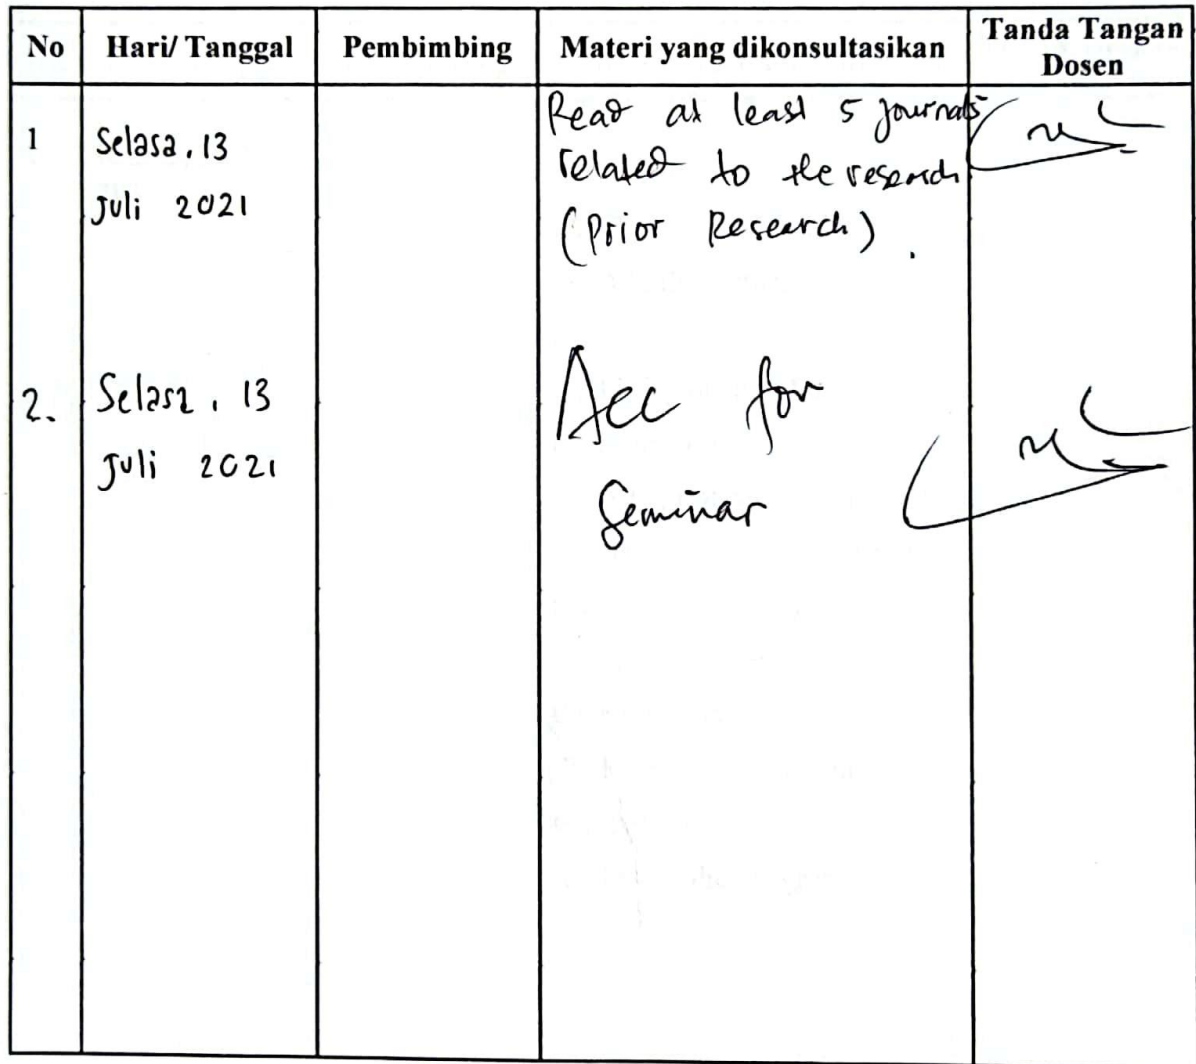 No Hari/ Tanggal Pembimbing Materi yang dikonsultasikan Tanda Tangan
Dosen
1 Selasa, 13 Read at least 5 journals
Juli 2021 related to the research
(Prior Research).
2. Selasa, 13 Acc for
Juli 2021 Seminar